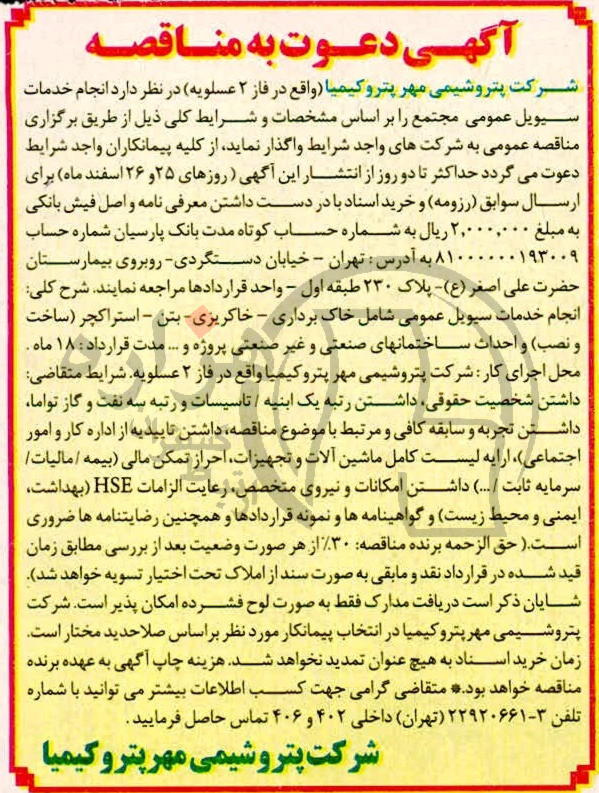 آگهـی دعـوت به منـاقصـه
شـرکت پتروشیمی مهر پتروکیمیا (واقع در فاز ۲ عسلویه) در نظر دارد انجام خدمات
سـیویل عمومی مجتمع را بر اساس مشخصات و شرایط کلی ذیل از طریق برگزاری
مناقصه عمومی به شرکت های واجد شرایط واگذار نماید، از کلیه پیمانکاران واجد شرایط
دعوت می گردد حداکثر تا دو روز از انتشـار این آگهی ( روزهای ۲۵ و ۲۶ اسفند ماه) برای
ارسـال سوابق (رزومه) و خرید اسناد با در دسـت داشتن معرفی نامه و اصل فیش بانکی
به مبلغ ۲,۰۰۰,۰۰۰ ریال به شـماره حسـاب کوتاه مدت بانک پارسیان شماره حساب
۸۱۰۰۰۰۰۰۱۹۳۰۰۹ به آدرس : تهران – خیابان دسـتگردی- روبروی بیمارسـتان
حضرت علی اصغر (ع)- پلاک ۲۳۰ طبقه اول – واحد قراردادها مراجعه نمایند. شرح کلی:
انجام خدمات سیویل عمومی شامل خاک برداری – خاکریزی- بتن – استراکچر (ساخت
و نصب) و احداث سـاختمانهای صنعتی و غیر صنعتی پروژه و ... مدت قرارداد : ۱۸ ماه .
محل اجرای کار : شرکت پتروشیمی مهر پتروکیمیا واقع در فاز ۲ عسلویه. شرایط متقاضی:
داشتن شخصیت حقوقی، داشـتن رتبه یک ابنیه / تاسیسات و رتبه سه نفت و گاز تواما،
داشـتن تجربه و سابقه کافی و مرتبط با موضوع مناقصه، داشتن تاییدیه از اداره کار و امور
اجتماعی)، ارایه لیسـت کامل ماشین آلات و تجهیزات، احراز تمکن مالی (بیمه / مالیات/
سرمایه ثابت / ...) داشـتن امکانات و نیروی متخصص، رعایت الزامات HSE (بهداشت،
ایمنی و محیط زیست) و گواهینامه ها و نمونه قراردادها و همچنین رضایتنامه ها ضروری
اسـت.( حق الزحمه برنده مناقصه: ۳۰٪ از هر صورت وضعیت بعد از بررسی مطابق زمان
قید شـده در قرارداد نقد و مابقی به صورت سند از املاک تحت اختیار تسویه خواهد شد).
شـایان ذکر است دریافت مدارک فقط به صورت لوح فشـرده امکان پذیر است. شرکت
پتروشـیمی مهر پتروکیمیا در انتخاب پیمانکار مورد نظر براساس صلاحدید مختار است.
زمان خرید اسـناد به هیچ عنوان تمدید نخواهد شـد. هزینه چاپ آگهی به عهده برنده
مناقصه خواهد بود.* متقاضی گرامی جهت کسـب اطلاعات بیشتر می توانید با شماره
تلفن ۳-۲۲۹۲۰۶۶۱ (تهران) داخلی ۴۰۲ و ۴۰۶ تماس حاصل فرمایید .
شرکت پتروشیمی مهر پتروکیمیا